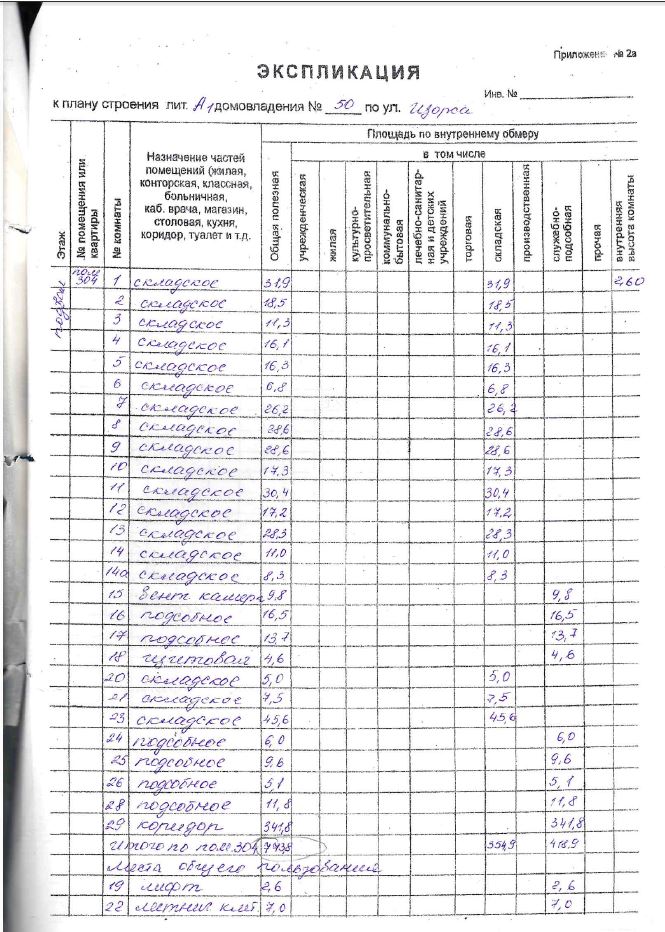 Приложение № 2а
ЭКСПЛИКАЦИЯ
Инв. №
к плану строения лит. А1 домовладения № 50 по ул. Изорса
Этаж
№ помещения или квартиры
№ комнаты
Назначение частей помещений (жилая, конторская, классная, больничная, каб. врача, магазин, столовая, кухня, коридор, туалет и т.д.
Площадь по внутреннему обмеру
Общая полезная
в том числе
учрежденческая
жилая
культурно-просветительная
коммунально-бытовая
лечебно-санитар-ная и детских учреждений
торговая
складская
производственная
служебно-подсобная
прочая
внутренняя высота комнаты
подвал пом 304 1 складское 31,9 31,9 2,60
2 складское 18,5 18,5
3 складское 11,3 11,3
4 складское 16,1 16,1
5 складское 16,3 16,3
6 складское 6,8 6,8
7 складское 26,2 26,2
8 складское 28,6 28,6
9 складское 28,6 28,6
10 складское 17,3 17,3
11 складское 30,4 30,4
12 складское 17,2 17,2
13 складское 28,3 28,3
14 складское 11,0 11,0
14а складское 8,3 8,3
15 вент камера 9,8 9,8
16 подсобное 16,5 16,5
17 подсобное 13,7 13,7
18 щитовая 4,6 4,6
20 складское 5,0 5,0
21 складское 7,5 7,5
23 складское 45,6 45,6
24 подсобное 6,0 6,0
25 подсобное 9,6 9,6
26 подсобное 5,1 5,1
28 подсобное 11,8 11,8
29 коридор 341,8 341,8
Итого по пом 304 773,8 354,9 418,9
Места общего пользования
19 лифт 2,6 2,6
22 лестнич клет. 7,0 7,0